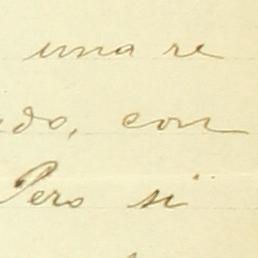 una re
ndo, con
Pero si